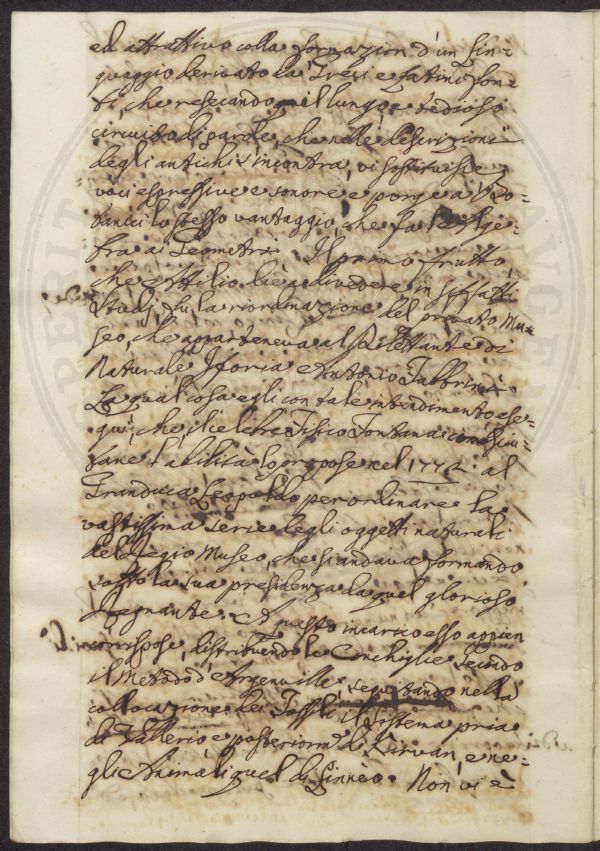 ed attrattivo colla formazion d'un lin-
guaggio derivato da' Greci e Latini fon-
ti, che resecando il lungo, e tedioso
circuito di parole, che nelle descrizioni
degli antichi s'incontra, vi sostituisce
voci espressive e sonore e porge a' Bo-
tanici lo stesso vantaggio, che fa l'Alge-
bra ai Geometri. Il primo frutto,
che Attilio diè a divedere in siffatti
studj, fu la riordinazione del privato Mu-
seo, che apparteneva al Dilettante di
Naturale Istoria Antonio Fabbrini.
La qual cosa egli con tale intendimento ese-
guì, che il celebre Fisico Fontana
l'abilità lo propose nel al
Granduca Leopoldo per ordinare la
vastissima serie degli oggetti naturali
del Regio Museo, che si andava formando
sotto la sua presidenza da quel glorioso
Regnante. A questo incarico esso appien
corrispose, distribuendo le Conchiglie secondo
il Metodo d'Argenville, seguitando nella
collocazione de' Fossili il Sistema pria
di Vallerio e posteriorm. di Kirvan, e ne-
gli Animali quel di Linnèo. Non vi è